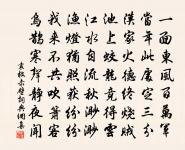 一面東風百萬軍
當年此處定三分
漢家火德終燒賊
池上蛟龍竟得雲
江水自流秋渺渺
漁燈猶照荻紛紛
我來不共吹簫客
烏鵲寒聲靜夜聞
袁枚赤壁詞典網集